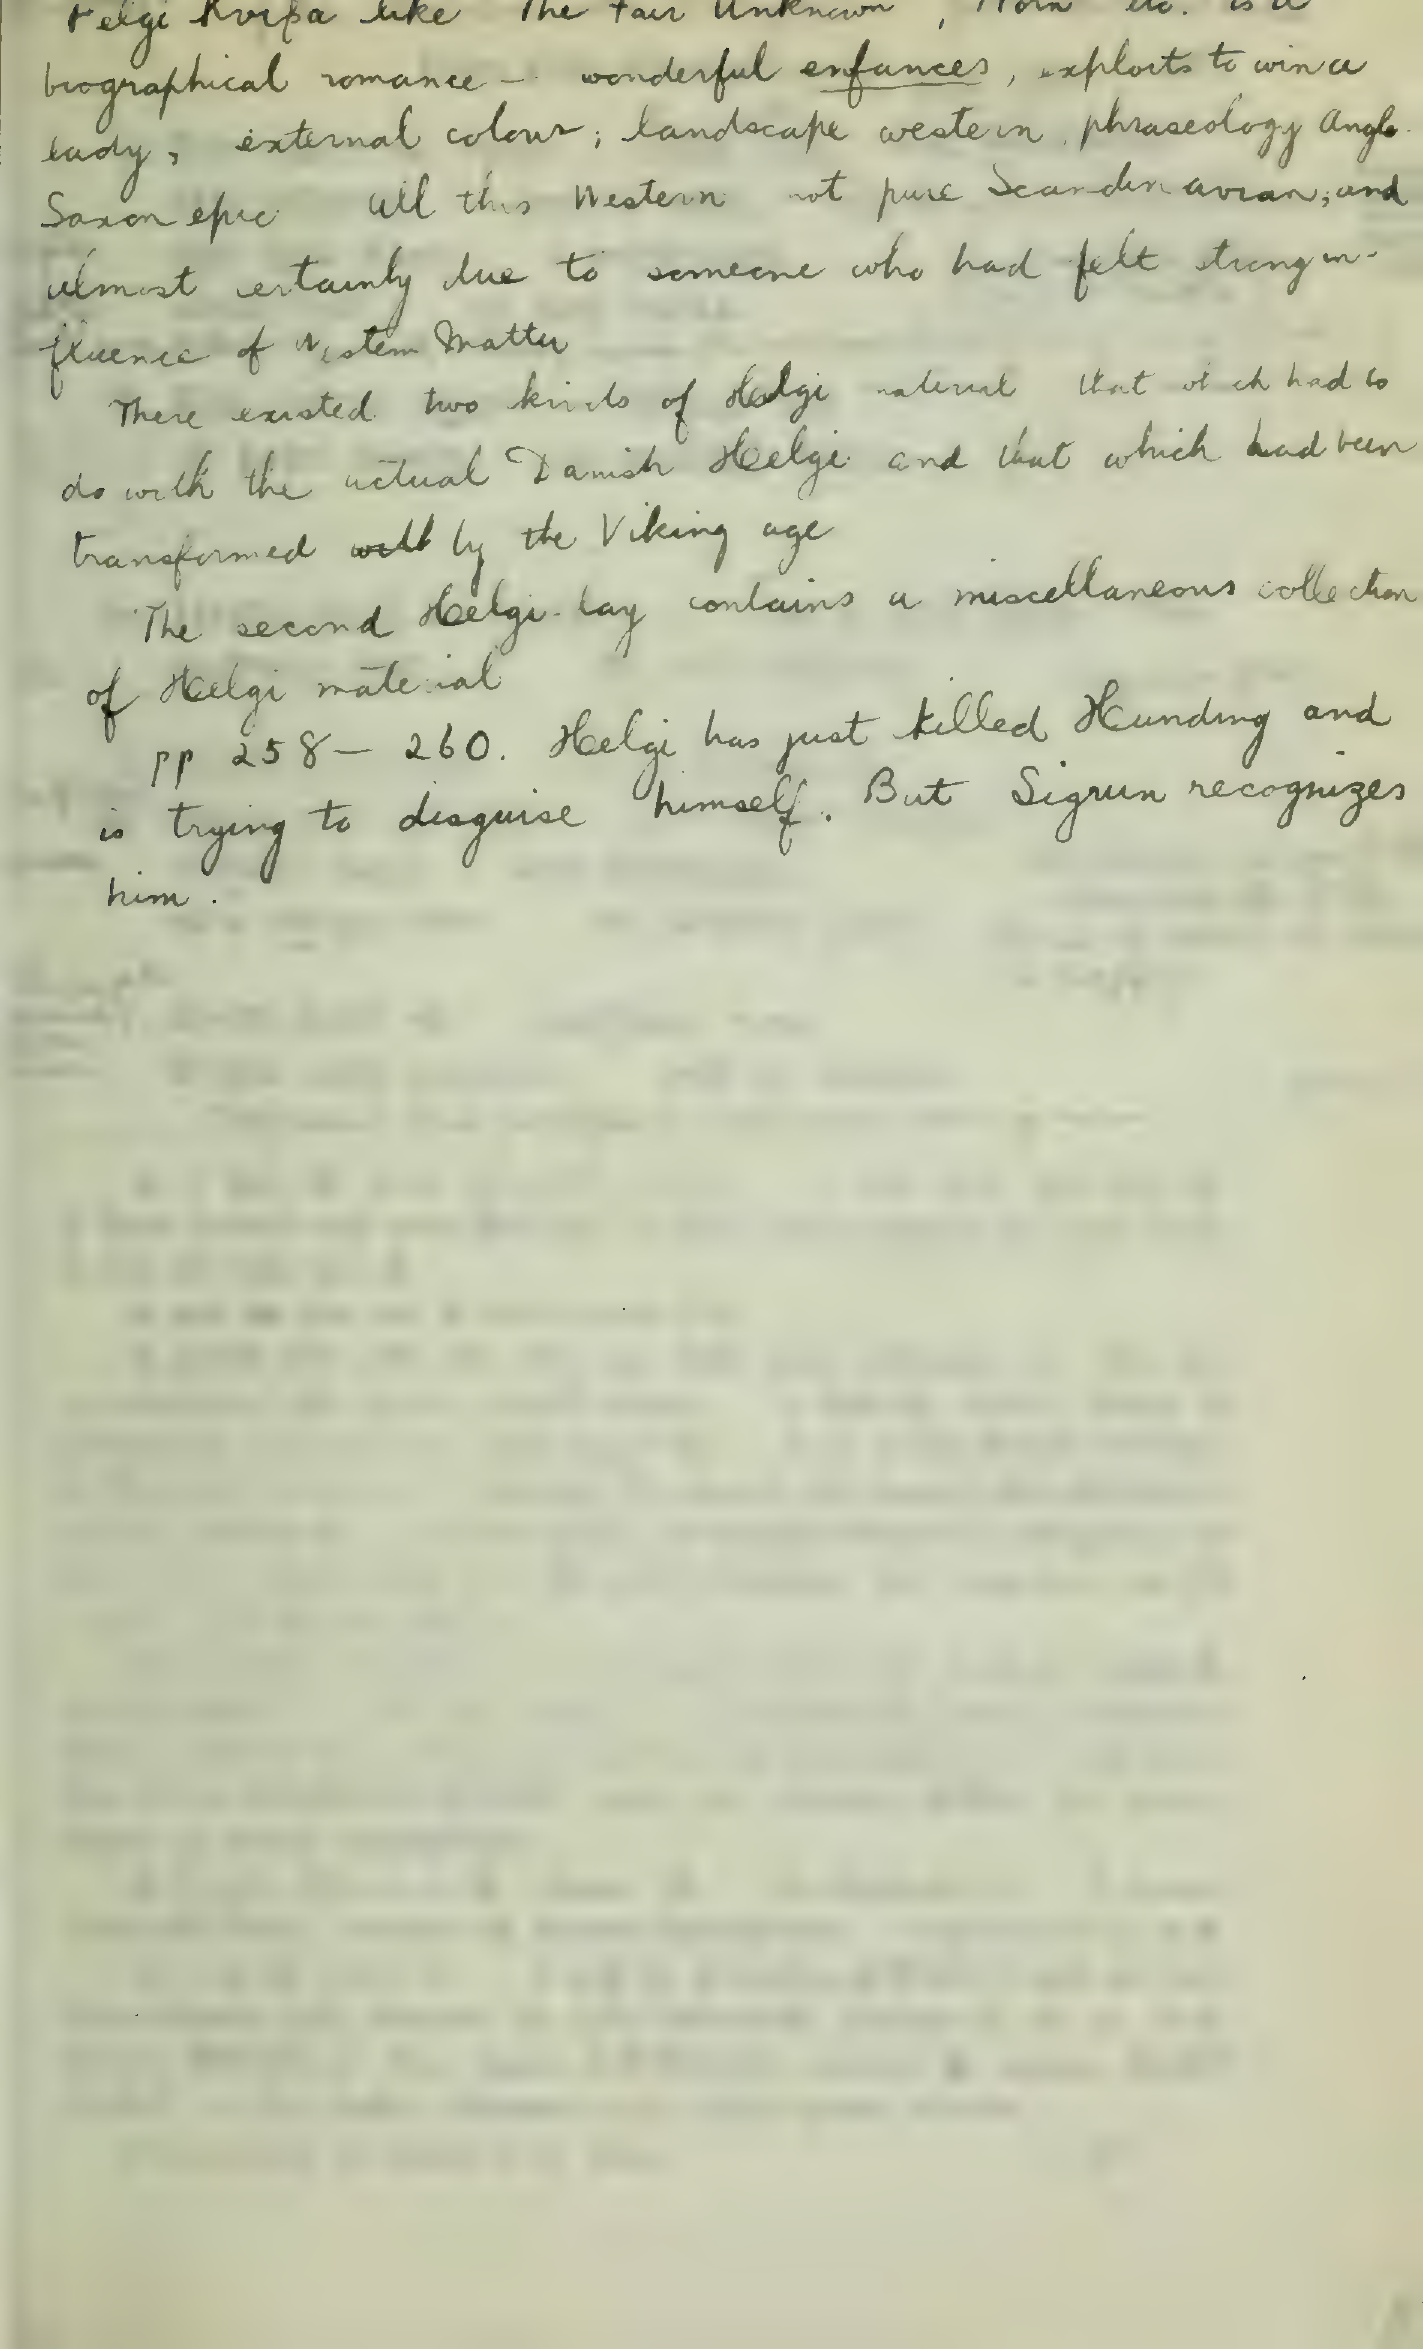 Helgi Kviþa like "The Fair Unknown", "Horn" etc. is a
biographical romance – wonderful enfances, exploits to win a
lady, external colour; landscape western, phraseology Anglo-
Saxon epic. All this Western not pure Scandinavian, and
almost certainly due to someone who had felt strong in-
fluence of Western Matter
There existed two kinds of Helgi material that which had to
do with the actual Danish Helgi and that which had been
transformed by the Viking age
The second Helgi-lay contains a miscellaneous collection
of Helgi material
pp 258 – 260. Helgi has just killed Hunding and
is trying to disguise himself. But Sigrun recognizes
him.